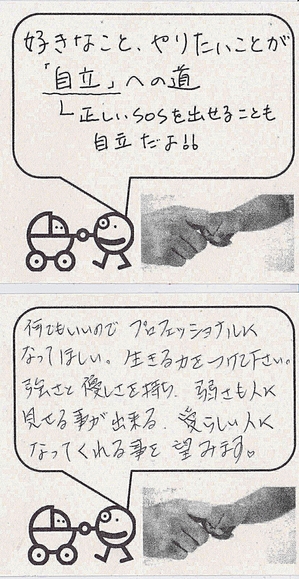 好きなこと、やりたいことが
「自立」への道
└正しいSOSを出せることも
自立だよ!!
何でもいいので プロフェッショナルに
なってほしい。生きる力をつけて下さい。
強さと優しさを持ち、弱さも人に
見せる事が出来る、愛らしい人に
なってくれる事を 望みます。